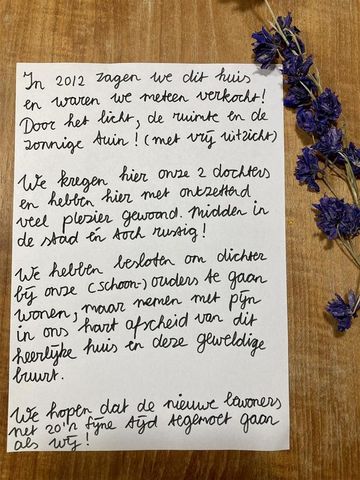 In 2012 zagen we dit huis
en waren we meteen verkocht!
Door het licht, de ruimte en de
zonnige tuin! (met vrij uitzicht)
We kregen hier onze 2 dochters
en hebben hier met ontzettend
veel plezier gewoond. Midden in
de stad én toch rustig!
We hebben besloten om dichter
bij onze (schoon-)ouders te gaan
wonen, maar nemen met pijn
in ons hart afscheid van dit
heerlijke huis en deze geweldige
buurt.
We hopen dat de nieuwe bewoners
net zo'n fijne tijd tegemoet gaan
als wij!